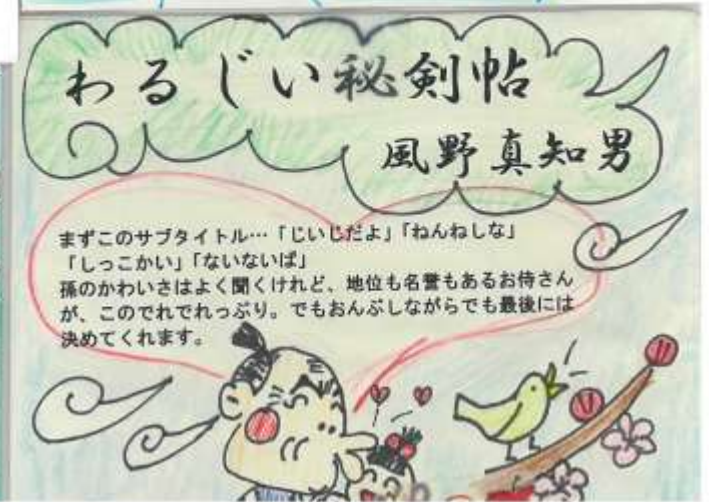 わるじい秘剣帖
風野真知男
まずこのサブタイトル…「じいじだよ」「ねんねしな」
「しっこかい」「ないないば」
孫のかわいさはよく聞くけれど、地位も名誉もあるお侍さん
が、このでれでれっぷり。でもおんぶしながらでも最後には
決めてくれます。